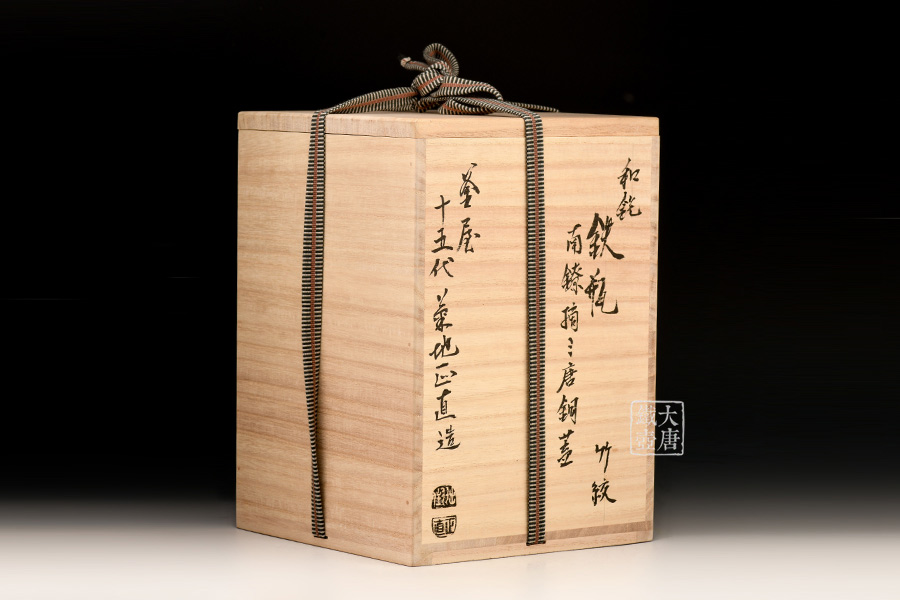 和銑
鉄瓶
竹紋
南鐐摘ミ唐銅蓋
釜屋
十五代 菊地正直造
大唐
鐵壺